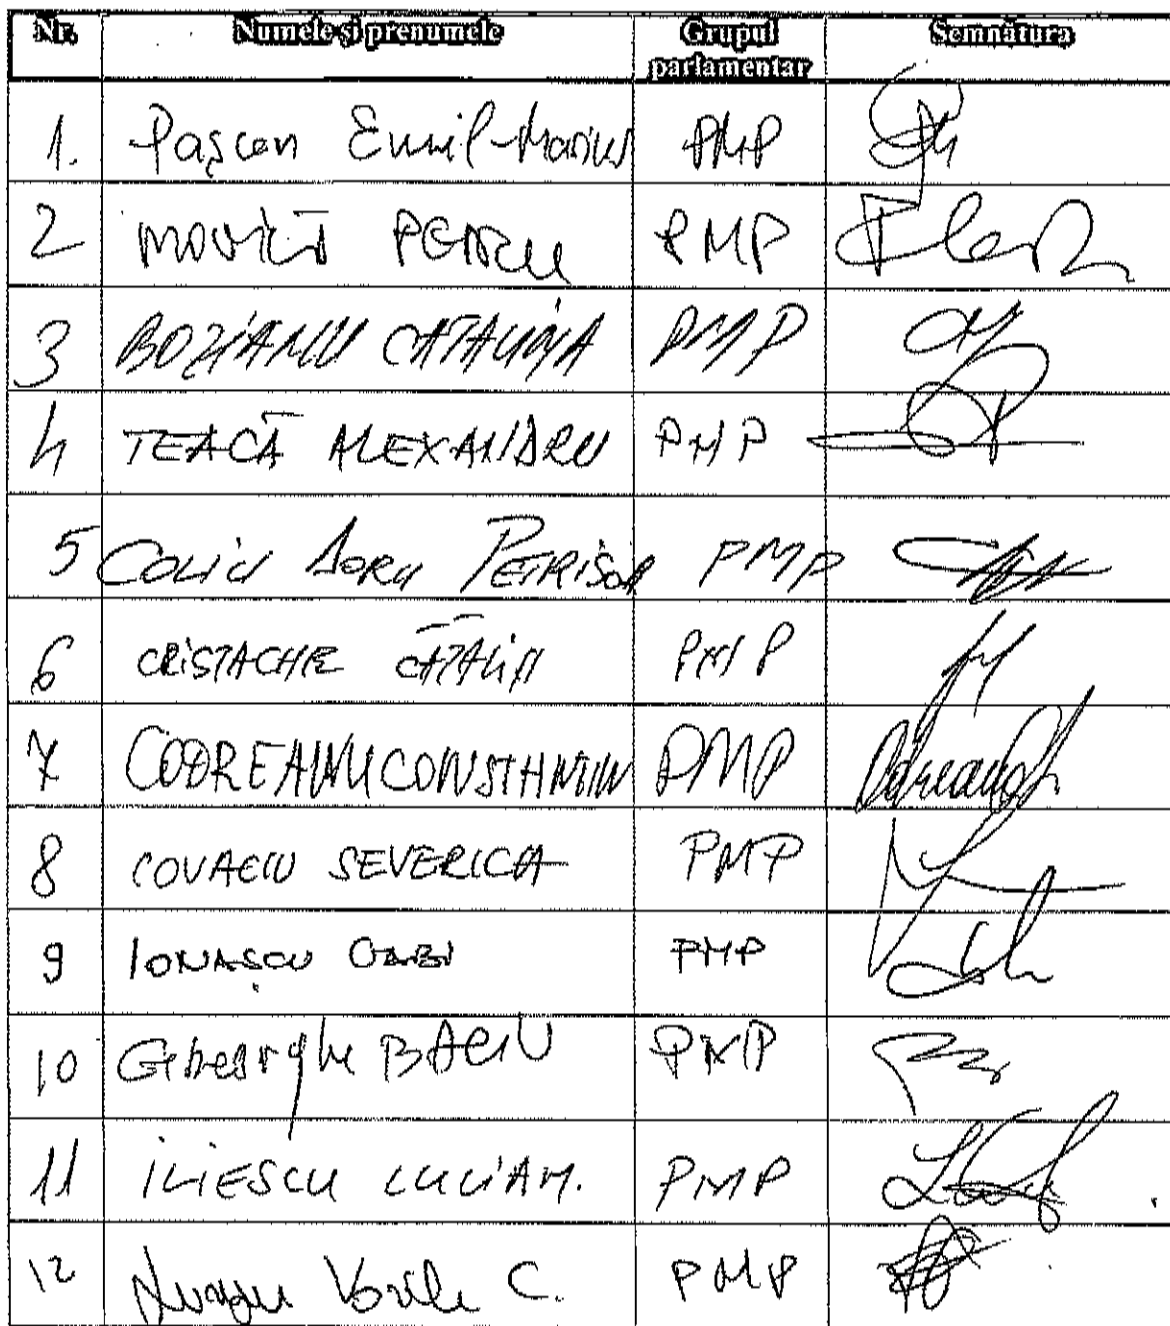 Nr. Numele și prenumele Grupul parlamentar Semnătura
1. Pașcan Emil-Marius PMP
2 MOVILĂ PETRU PMP
3 BOZIANU CATALINA PMP
4 TEACĂ ALEXANDRU PMP
5 COLIU DORU PETRISOR PMP
6 CRISTACHE CĂTĂLIN PMP
7 CODREANU CONSTANTIN PMP
8 COVACIU SEVERICA PMP
9 IONAȘCU GABI PMP
10 Gheorghe BACIU PMP
11 ILIESCU LUCIAN. PMP
12 C. PMP